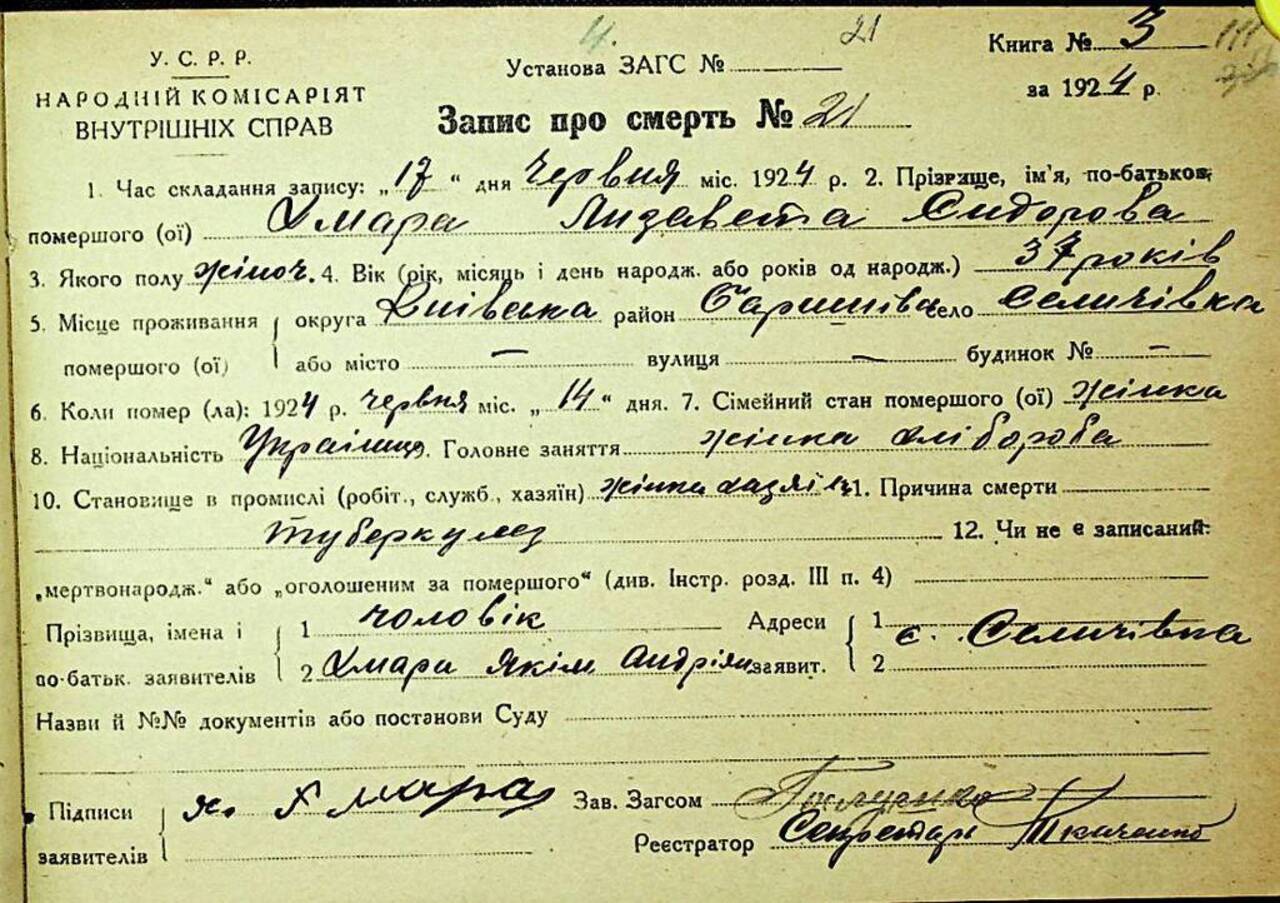 У. С. Р. Р.
НАРОДНІЙ КОМІСАРІЯТ
ВНУТРІШНІХ СПРАВ
4.
21
Установа ЗАГС №
Книга № 3
за 1924 р.
Запис про смерть № 21
1. Час складання запису: „17“ дня Червня міс. 1924 р. 2. Прізвище, ім'я, по-батькові
помершого (ої) Хмара Лизавета Сидорова
3. Якого полу жіноч. 4. Вік (рік, місяць і день народж. або років од народж.) 37 років
5. Місце проживання помершого (ої)
округа Київська район Баришівс село Селичівка
або місто — вулиця — будинок № —
6. Коли помер (ла): 1924 р. червня міс. „14“ дня. 7. Сімейний стан помершого (ої) жінка
8. Національність Українка 9. Головне заняття жінка хлібороба
10. Становище в промислі (робіт., служб., хазяїн) жінка хазяїна 11. Причина смерти
туберкульоз 12. Чи не є записаний:
„мертвонародж.“ або „оголошеним за помершого“ (див. Інстр. розд. III п. 4)
Прізвища, імена і по-батьк. заявителів
1 чоловік
2 Хмара Якім Андріян
Адреси заявит.
1 с. Селичівка
2
Назви й №№ документів або постанови Суду
Підписи заявителів
Як. Хмара
Зав. Загсом
Реєстратор Секретарь Ткаченко